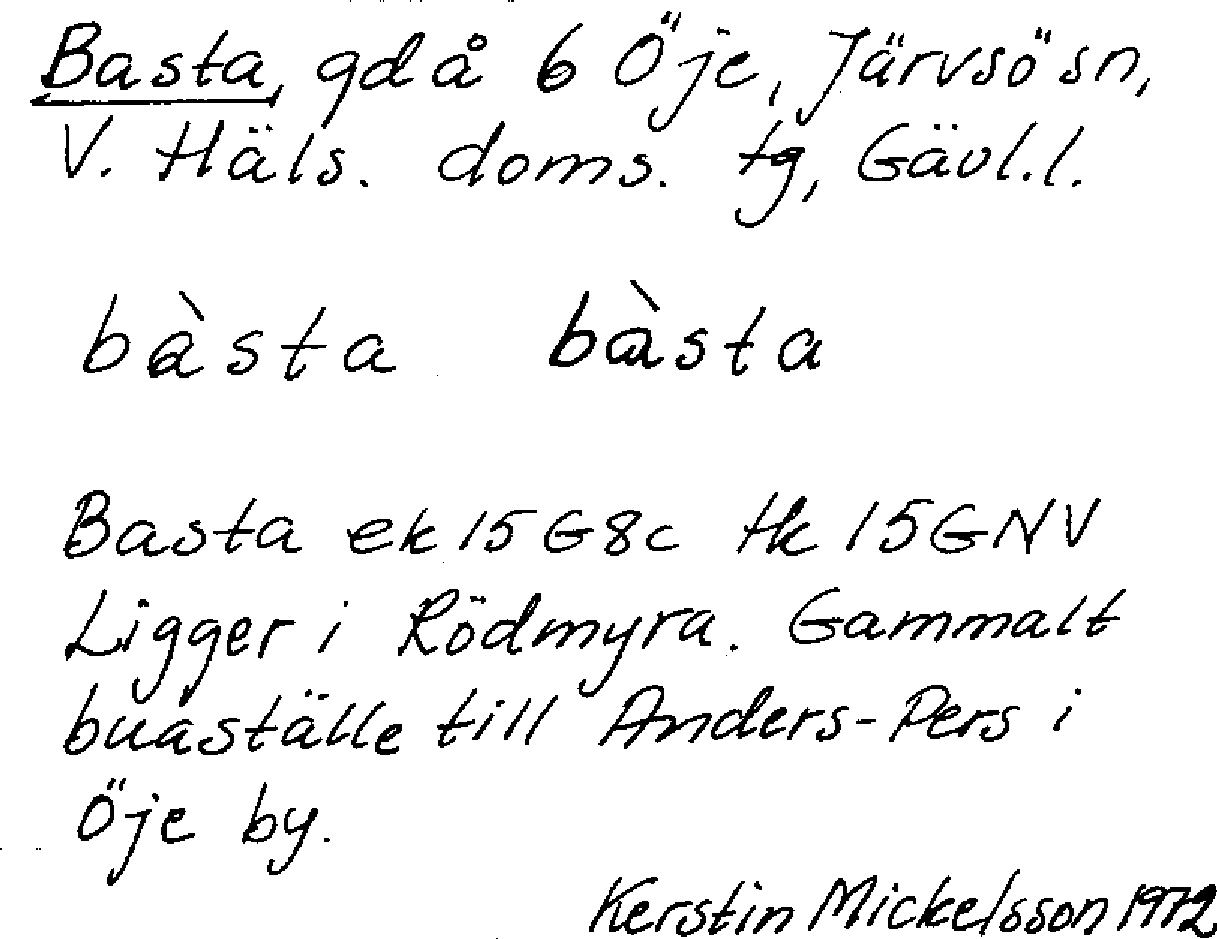 Basta, gd å 6 Öje, Järvsö sn,
V. Häls. doms. tg, Gävl.l.
bàsta bàsta
Basta ek 15G8c tk 15GNV
Ligger i Rödmyra. Gammalt
buaställe till Anders-Pers i
Öje by.
Kerstin Mickelsson 1972